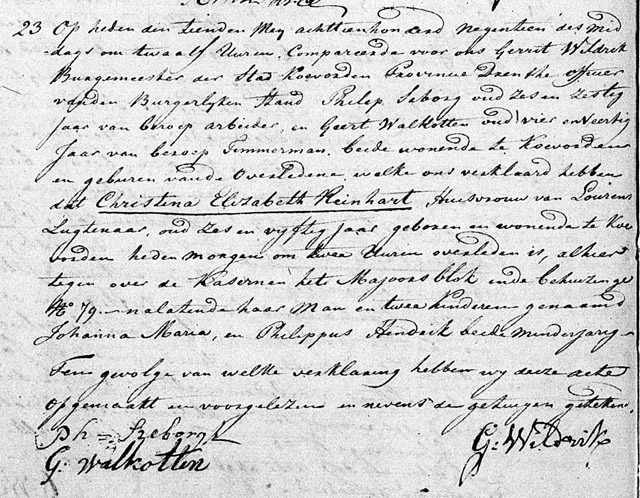 23 Op heden den tienden Mey achttienhonderd negentien des mid
dags om twaalf Uuren, Compareerde voor ons Gerrit Wildrik
Burgemeester der Stad Koevorden Provincie Drenthe officier
van den Burgerlyken Stand Philip Seborg oud zes en zestig
Jaar van beroep arbeider, en Geert Walkotten oud vier en Veertig
Jaar van beroep Timmerman, beide wonende te Koevorden
en geburen van de Overledene, welke ons verklaard hebben
dat Christina Elizabeth Reinhart, Huisvrouw van Lourens
Lugtenaar, oud zes en vyftig jaar geboren en wonende te Koe
vorden heden morgen om twee Uuren overleden is, alhier
tegen over de Kasernen het Majoorsblok in de behuizinge
No 79 nalatende haar Man en twee Kinderen genaamd
Johanna Maria, en Philippus Hendrik beide minderjarig
Ten gevolge van welke verklaring hebben wy deeze acte
opgemaakt en voorgelezen en nevens de getuigen getekend
Ph
G: Walkotten
G: Wildrik